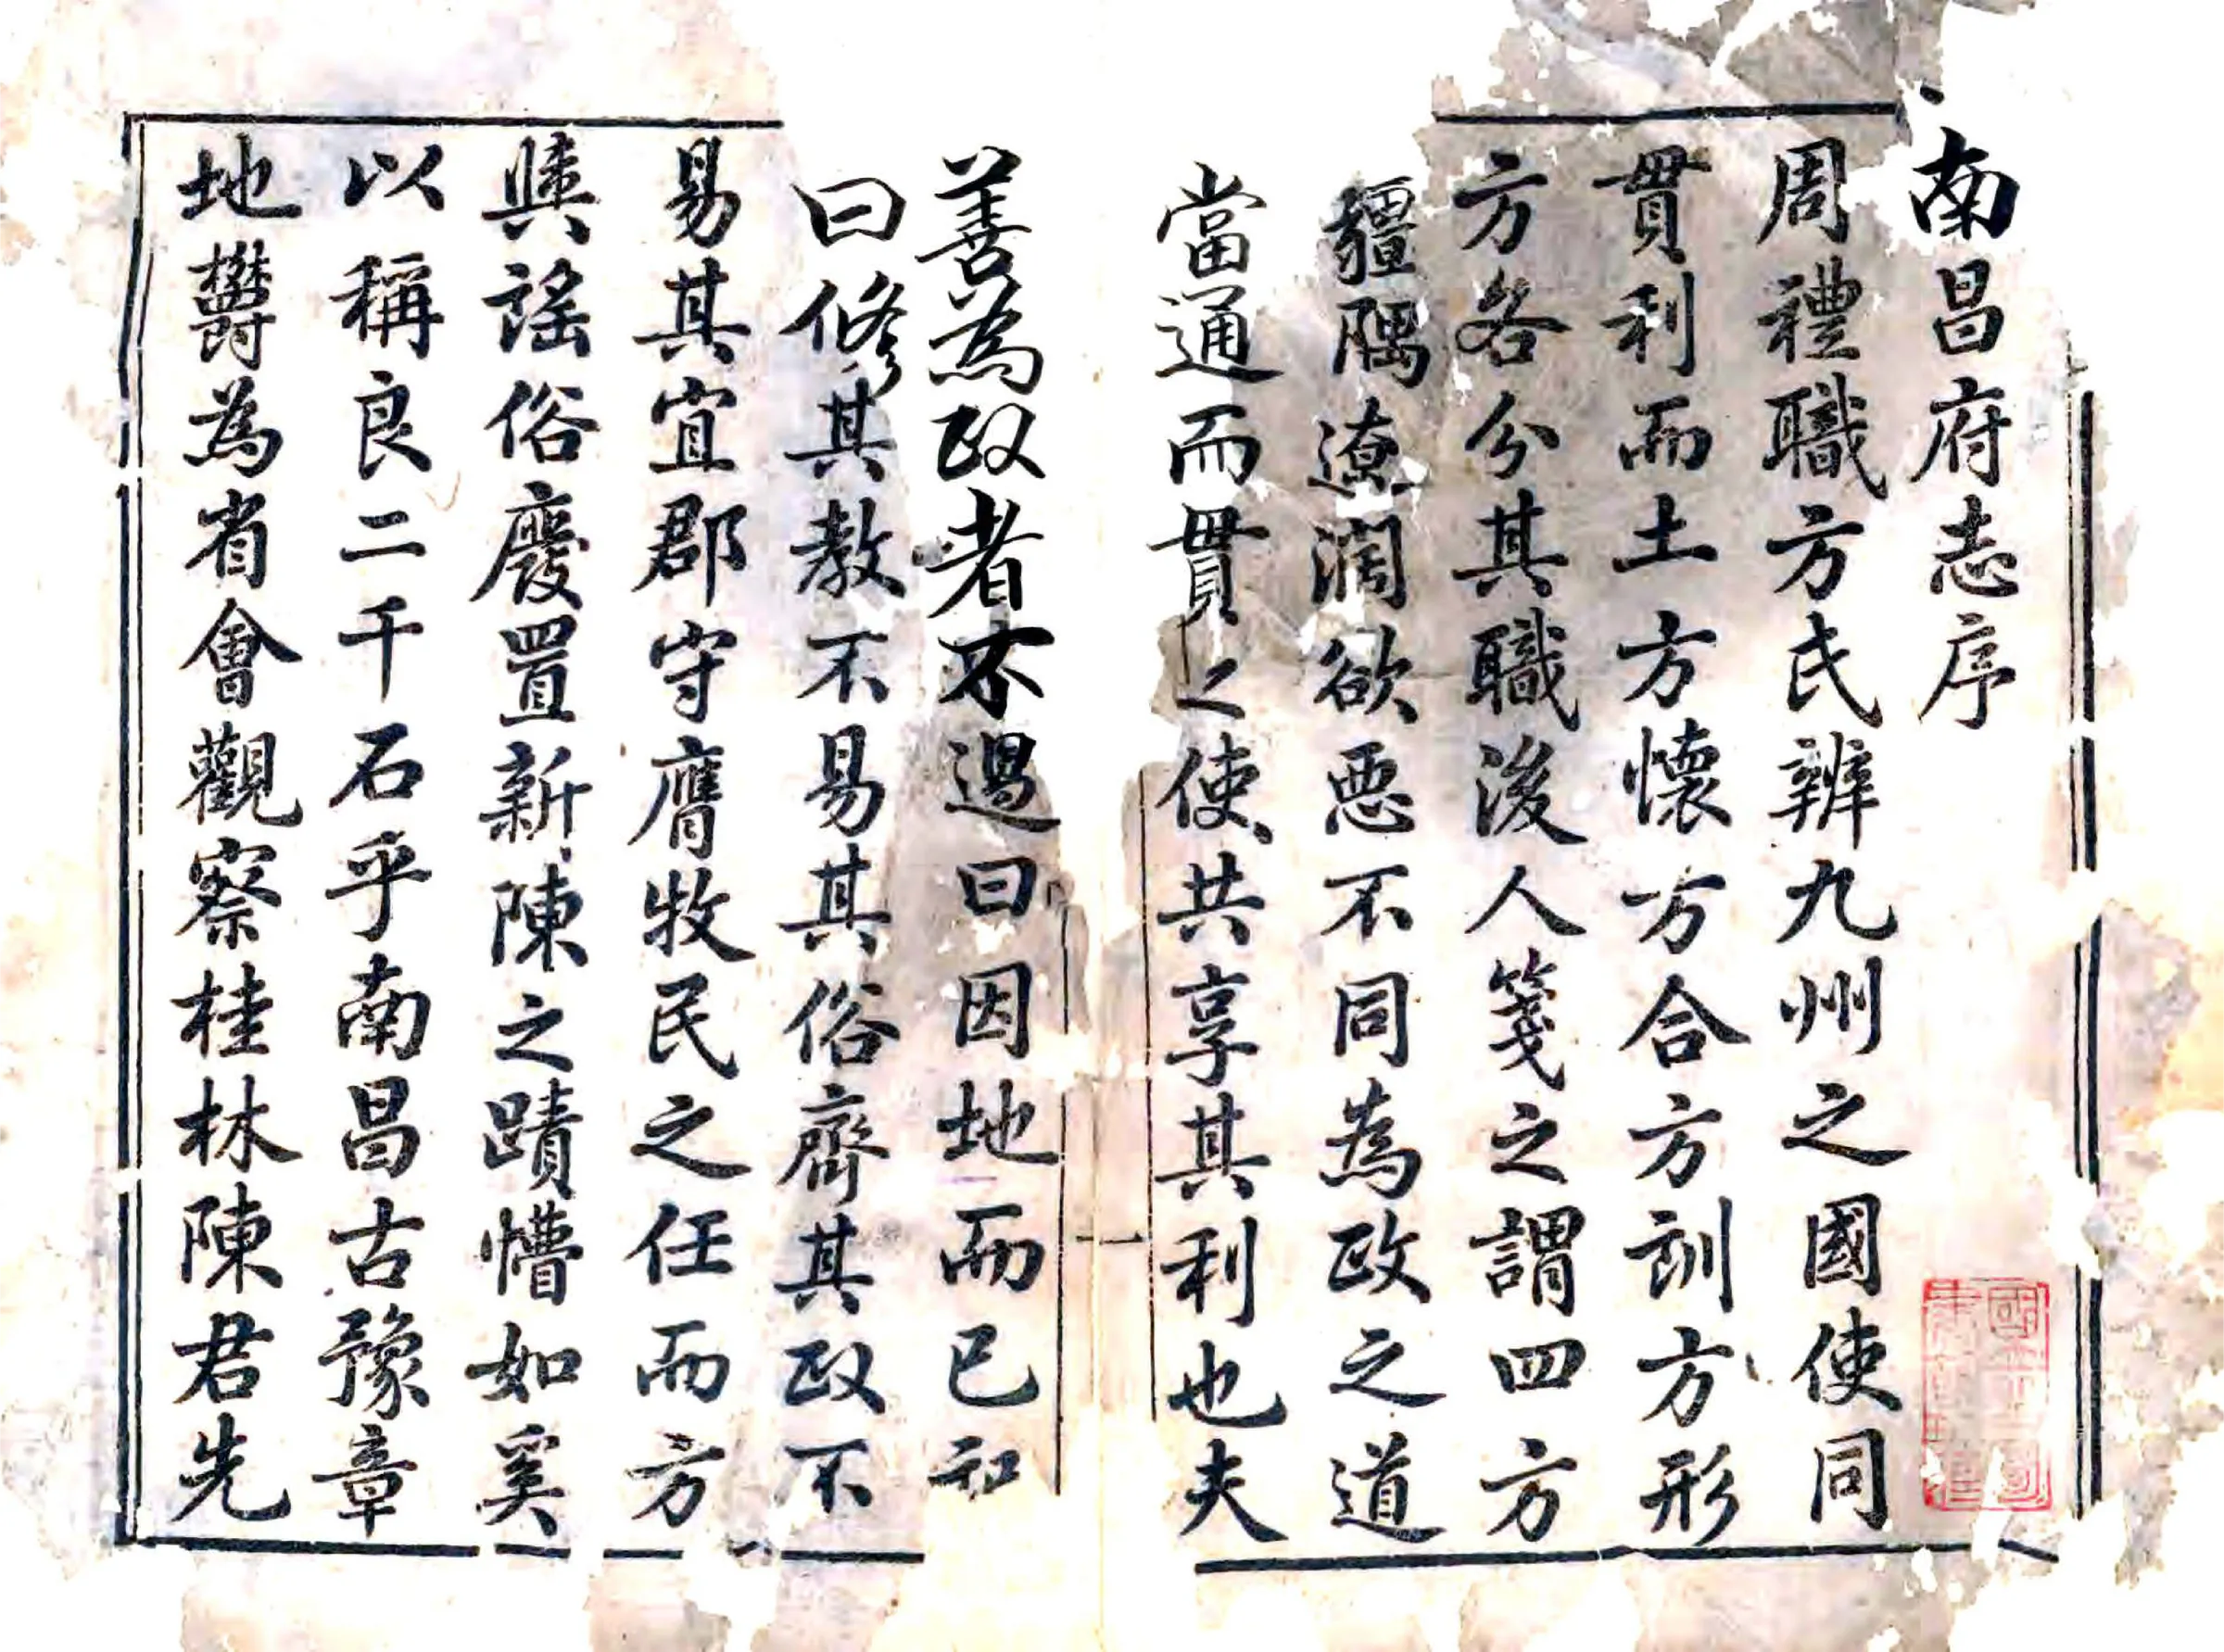 南昌府志序
周禮職方氏辨九州之國使同
貫利而土方懷方合方訓方形
方各分其職後人箋之謂四方
疆隅遼闊欲惡不同為政之道
當通而貫之使共享其利也夫
一
善為政者不過曰因地而已和
曰修其教不易其俗齊其政不
易其宜郡守膺牧民之任而方
輿謠俗廢置新陳之蹟懵如奚
以稱良二千石乎南昌古豫章
地欝為省會觀察桂林陳君先